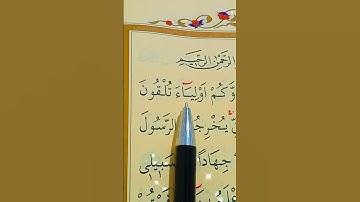 الرَّحْمٰنِ الرَّحِيمِ
وَّكُمْ اَوْلِيَٓاءَ تُلْقُونَ
يُخْرِجُ الرَّسُولَ
جِهَادًا سَبِيلِي